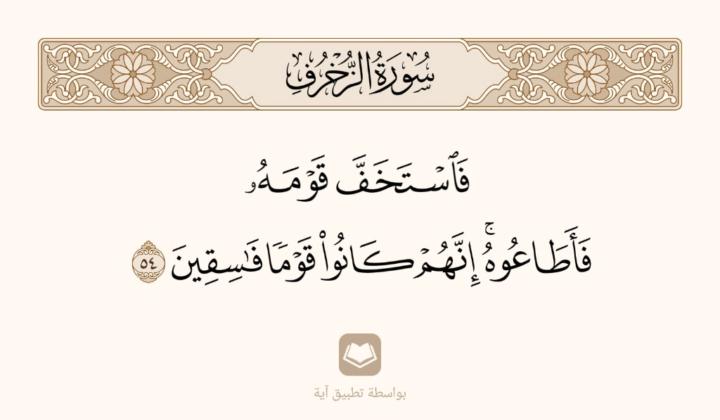 سُورَةُ الزُّخْرُفِ
فَٱسْتَخَفَّ قَوْمَهُۥ
فَأَطَاعُوهُۚ إِنَّهُمْ كَانُوا۟ قَوْمًا فَـٰسِقِينَ ٥٤
بواسطة تطبيق آية